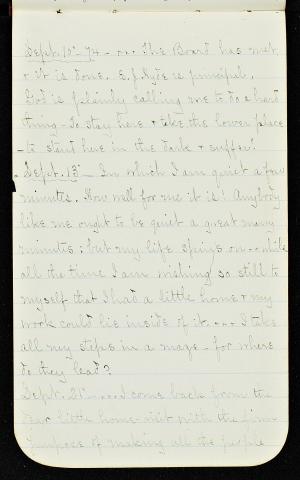 Sept. 10" - 74 - ... The Board has met,
& it is done. E. J. Hyde is principal,
God is plainly calling me to do a hard
thing - To stay here & take the lower place
- to stand here in the dark & suffer!
Sept. 13" - In which I am quiet a few
minutes. How well for me it is! Anybody
like me ought to be quiet a great many
minutes; but my life spins on - while
all the time I am wishing so still to
myself that I had a little home & my
work could lie inside of it. ... I take
all my steps in a maze - for where
do they lead?
Sept. 21" - ... I come back from the
dear little home-visit with the firm
purpose of making all the people